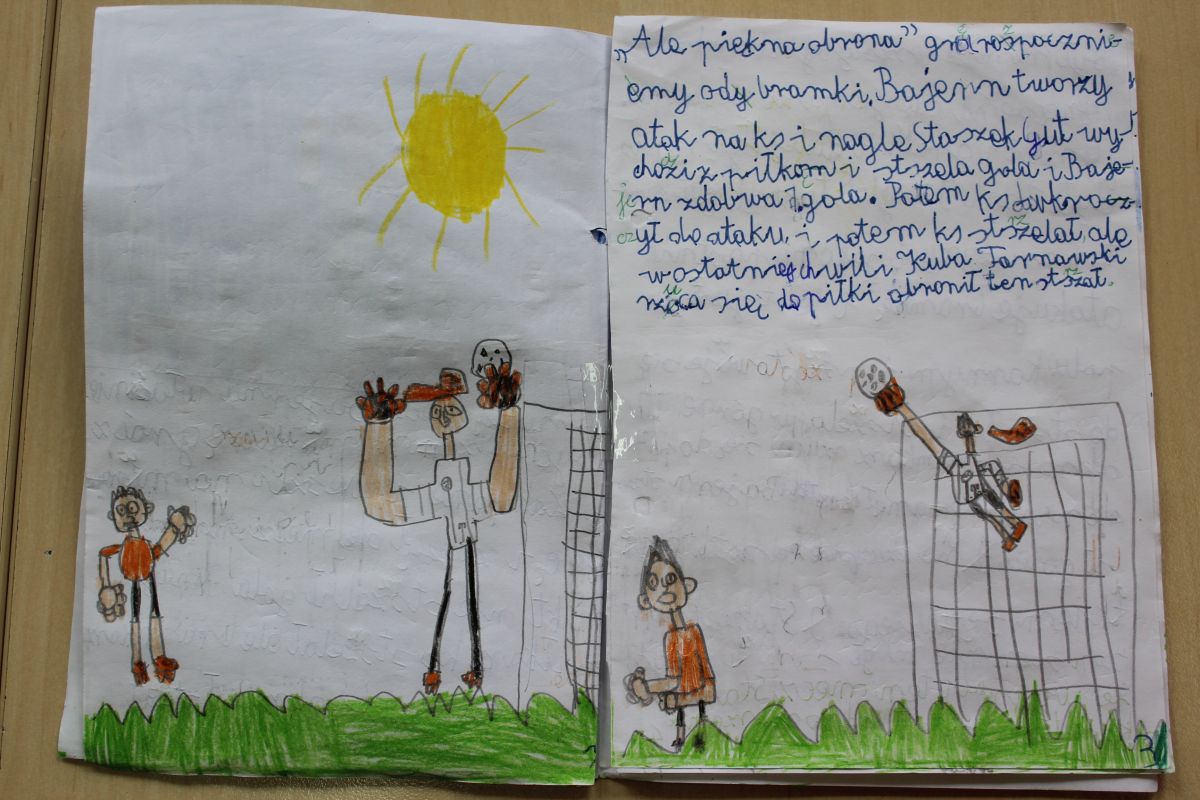 „Ale piękna obrona” grę rospocznie-
emy ody bramki. Bajern tworzy
atak na ks i nagle Staszek Gut wy-
chozi z piłkom i stszela gola i Baje-
jern zdobwa 1 gola. Potem ks dwkrocz-
czył do ataku, i potem ks stszelał, ale
w ostatniej chwili Kuba Tarnawski
rzóca się do piłki obronił ten stszał.
3